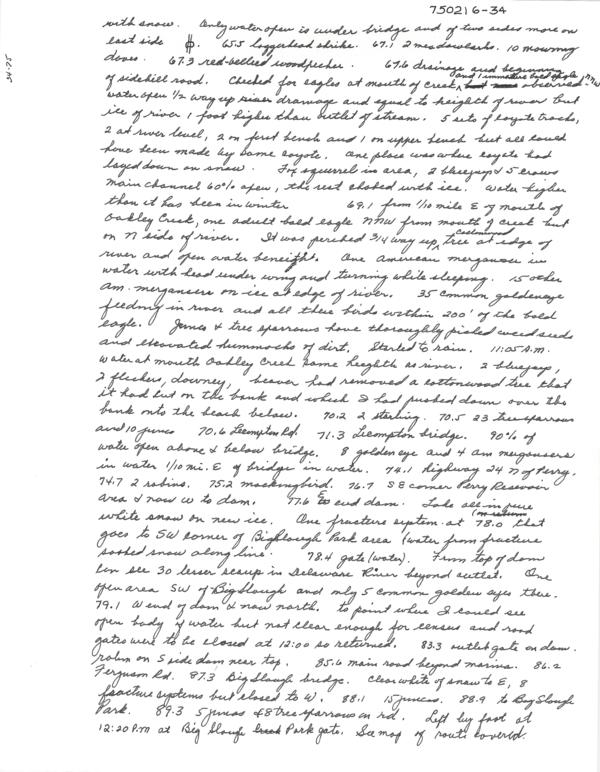 750216-34
SC-A5
with snow. Only water open is under bridge and of two sides more on
east side. 65.5 loggerhead shrike. 67.1 2 meadowlarks. 10 mourning
doves. 67.3 red-bellied woodpecker. 67.6 drainage and beginning
of sidehill road. Checked for eagles at mouth of Creek, and 1 immature bald eagle observed NNW
water open 1/2 way up river drainage and equal to heighth of river but
ice of river 1 foot higher than outlet of stream. 5 sets of coyote tracks,
2 at river level, 2 on first bench and 1 on upper bench but all could
have been made by same coyote. One place was where coyote had
layed down on snow. Fox squirrel in area, 2 bluejays & 5 crows
main channel 60% open, the rest choked with ice. Water higher
than it has been in winter 69.1 from 1/10 mile E of mouth of
Oakley Creek, one adult bald eagle NNW from mouth of creek but
on N side of river. It was perched 3/4 way up cottonwood tree at edge of
river and open water beneight. One American merganser in
water with head under wing and turning while sleeping. 15 other
am. mergansers on ice at edge of river. 35 common goldeneye
feeding in river and all these birds within 200' of the bald
eagle. Juncos & tree sparrows have thoroughly picked weed seeds
and excavated hummocks of dirt. Started to rain. 11:05 A.M.
Water at mouth Oakley Creek same heighth as river. 2 bluejays,
2 flicker, downey, beaver had removed a cottonwood tree that
it had cut on the bank and which I had pushed down over the
bank onto the beach below. 70.2 2 starling. 70.5 23 tree sparrows
and 10 juncos 70.6 Lecompton Rd. 71.3 Lecompton bridge. 90% of
water open above & below bridge. 8 goldeneye and 4 am mergansers
in water 1/10 mi. E of bridge in water. 74.1 highway 24 N of Perry.
74.7 2 robins. 75.2 mockingbird. 76.7 SE corner Perry Resevoir
area & now W to dam. 77.6 E end dam. Lake all in pure
white snow on new ice. One fracture system at 78.0 (on return) that
goes to SW corner of Big Slough Park area (water from fracture
soaked snow along line. 78.4 gate (water). From top of dam
can see 30 lesser scaup in Delaware River beyond outlet. One
open area SW of Big Slough and only 5 common golden eyes there.
79.1 W end of dam & now north. to point where I could see
open body of water but not clear enough for census and road
gates were to be closed at 12:00 so returned. 83.3 outlet gate on dam.
robin on S side dam near top. 85.6 main road beyond marina. 86.2
Ferguson Rd. 87.3 Big Slough bridge. Clear white of snow to E, 8
fracture systems but closed to W. 88.1 15 juncos. 88.9 to Big Slough
Park. 89.3 5 juncos & 8 tree sparrows on rd. Left by foot at
12:20 P.M at Big Slough Creek Park gate. See map of route covered.